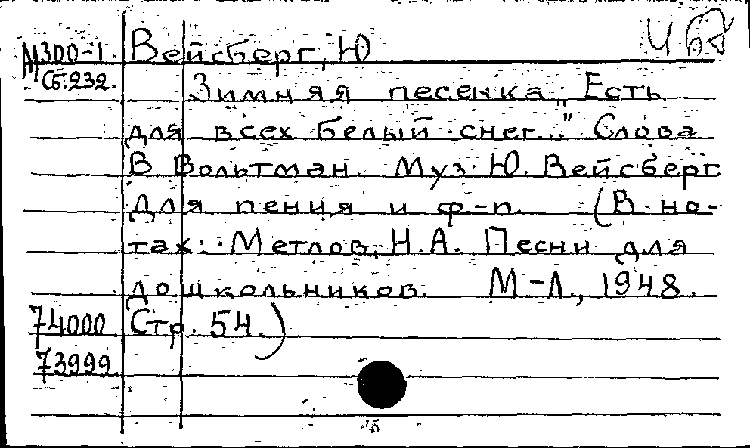 М300-1 Вейсберг, Ю
Сб.232.
Зимняя песенка „Есть
для всех белый снег..." Слова
В Вольтман. Муз. Ю. Вейсберг
Для пения и ф-п. (В но-
тах: Метлов, Н.А. Песни для
дошкольников. М-Л., 1948.
74000 Стр. 54.)
73999